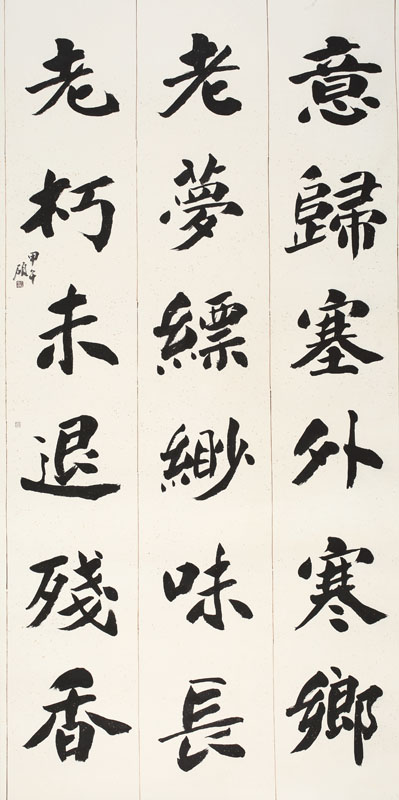 意歸塞外寒鄉
老夢縹緲味長
老朽未退殘香
甲午
碩